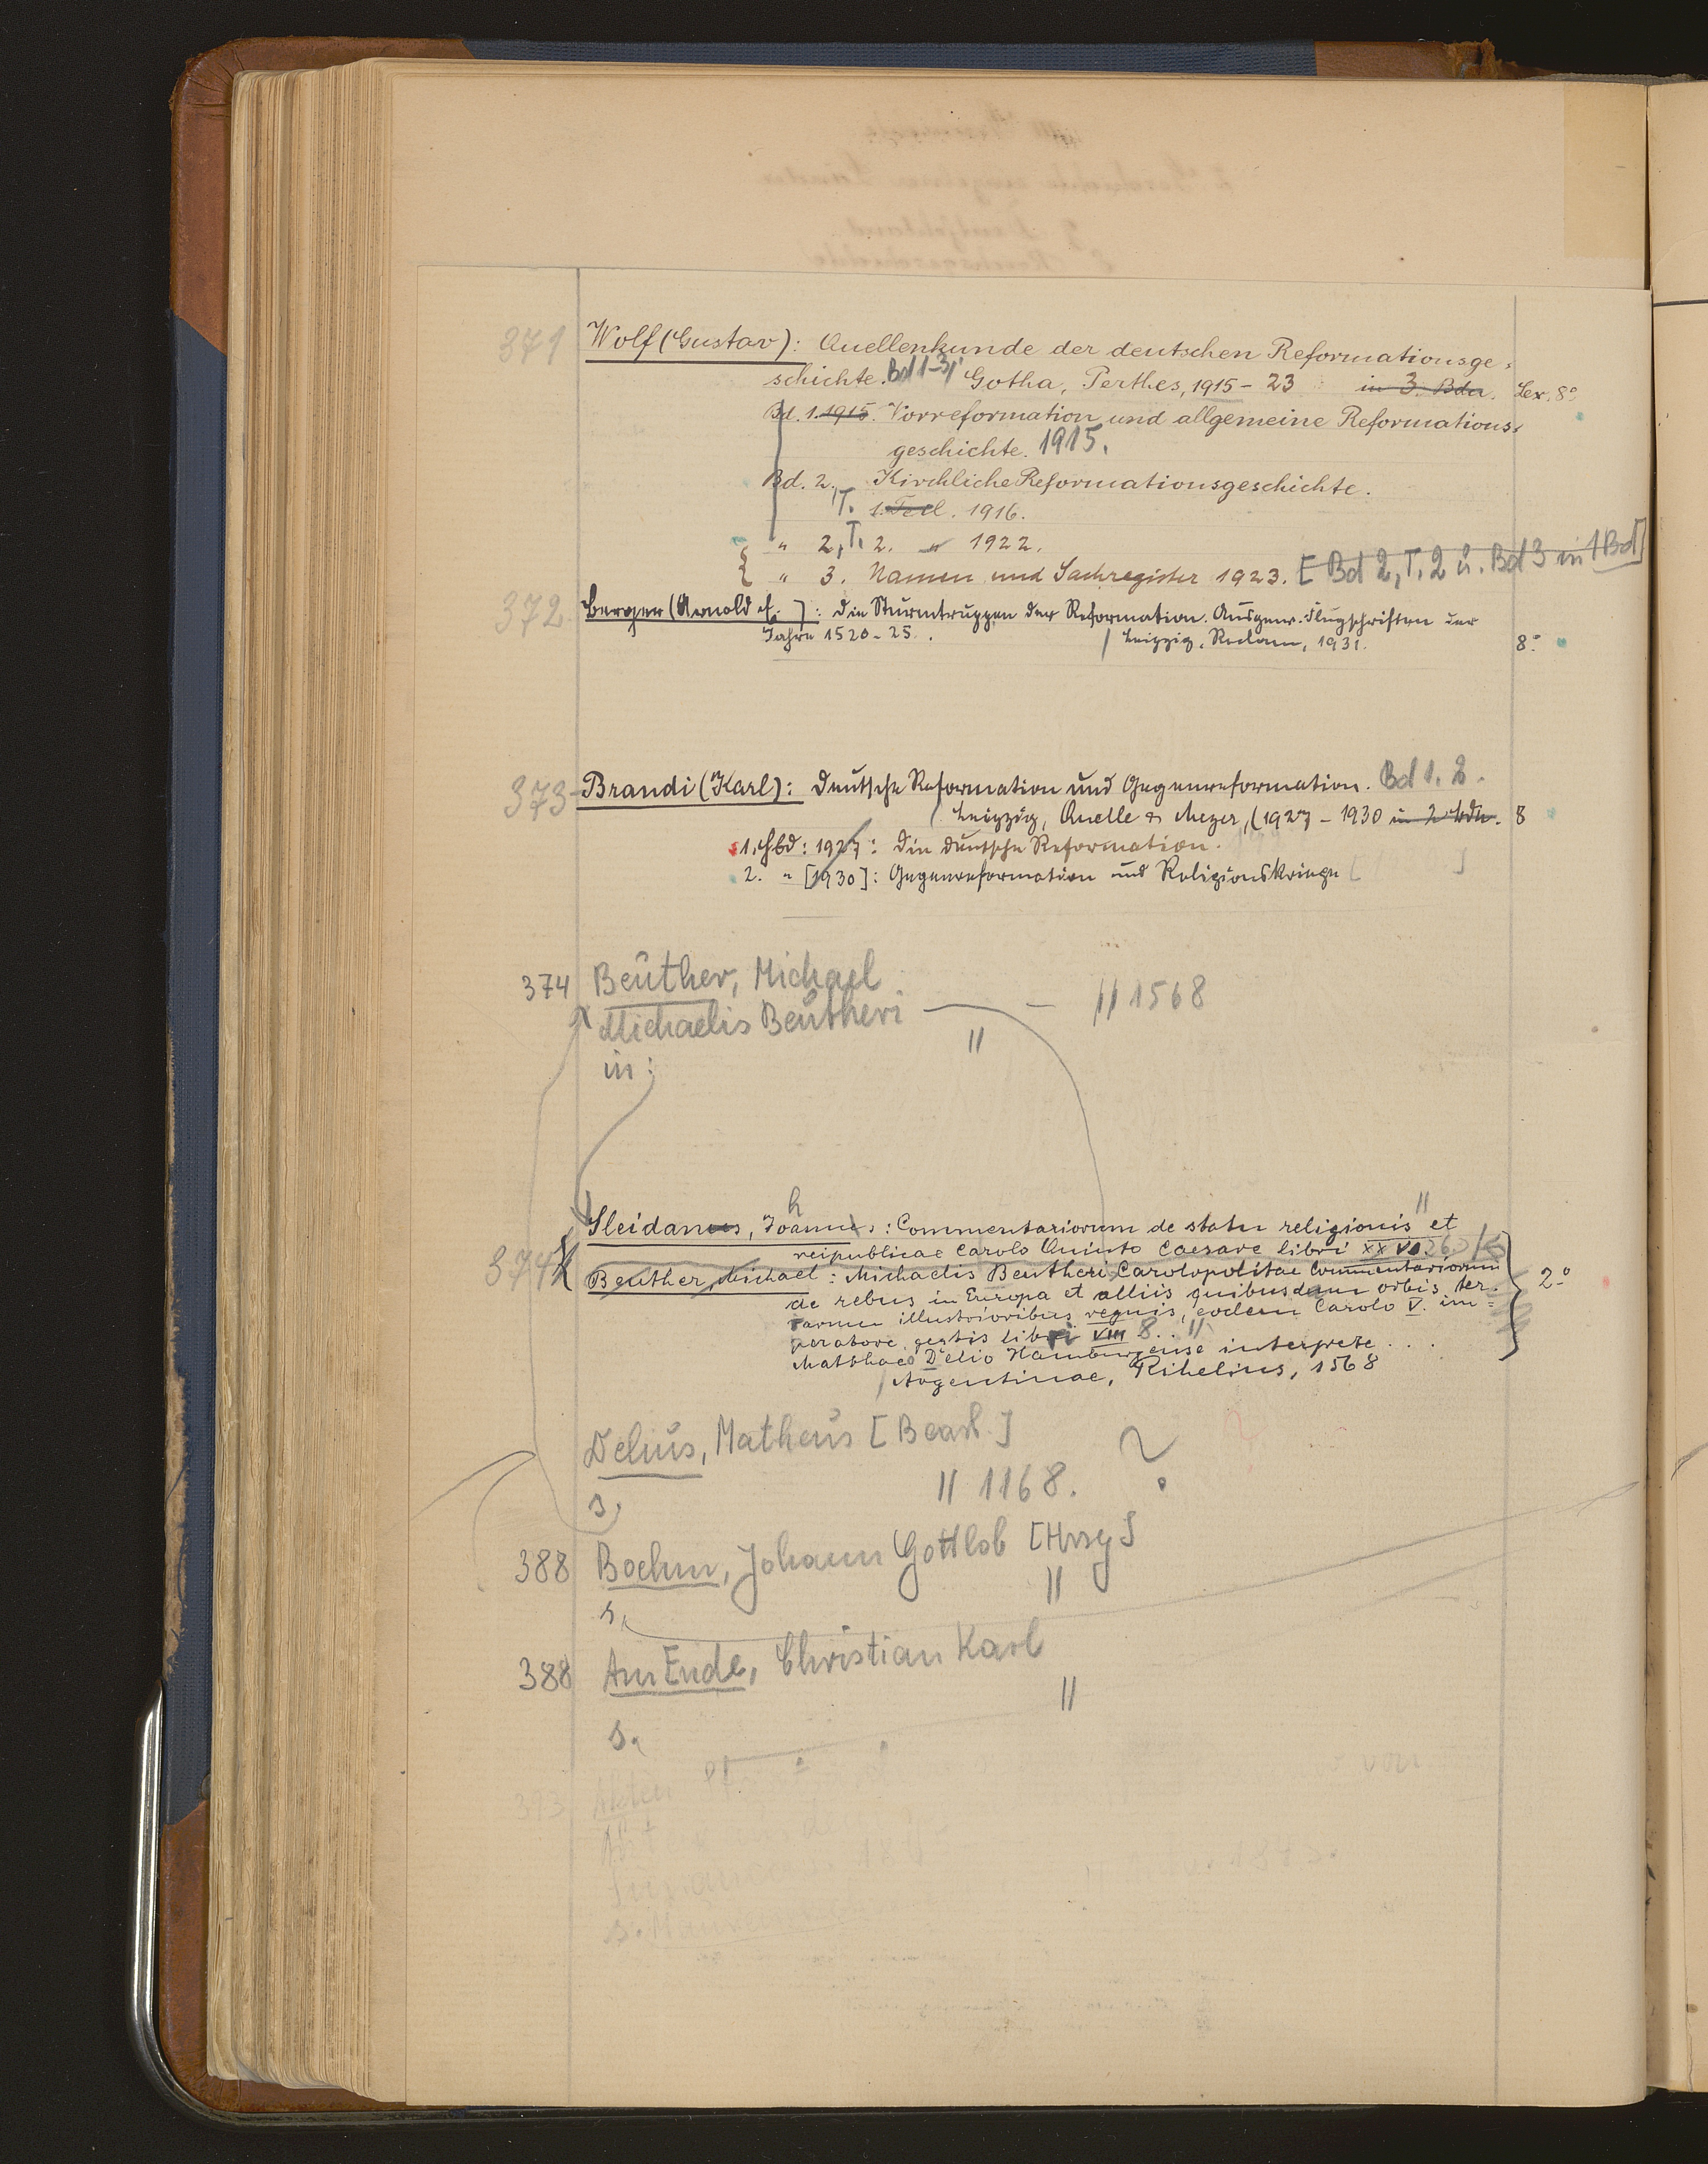 371 Wolf (Gustav): Quellenkunde der deutschen Reformationsge-
schichte. Bd 1-3/ Gotha, Perthes, 1915-23 in 3 Bdn. Lex. 8°
Bd. 1. 1915. Vorreformation und allgemeine Reformations-
geschichte. 1915.
Bd. 2., Kirchliche Reformationsgeschichte.
T. 1. Teil. 1916.
" 2, T. 2. " 1922.
" 3. Namen und Sachregister 1923. [Bd 2, T. 2 u. Bd 3 in 1 Bd]
372 Berger (Arnold E.): Die Sturmtruppen der Reformation. Ausgew. Flugschriften der
Jahre 1520-25. / Leipzig, Reclam, 1931. 8°
373 Brandi (Karl): Deutsche Reformation und Gegenreformation. Bd 1. 2.
/ Leipzig, Quelle & Meyer, (1927-1930 in 2 Bdn. 8
1. Hbd: 1927: Die deutsche Reformation.
2. " [1930]: Gegenreformation und Religionskriege [ ]
374 Beuther, Michael
Michaelis Beutheri — — // 1568
//
in:
h
Sleidanus, Joannes: Commentariorum de statu religionis // et
reipublicae Carolo Quinto Caesare libri XXVI. 26
374 Beuther, Michael: Michaelis Beutheri Carolopolitae Commentariorum
de rebus in Europa et alliis quibusdam orbis ter- 2°
rarum illustrioribus regnis, eodem Carolo V. im=
peratore, gestis libri VIII 8.. //
Matthaeo Delio Hamburgense interprete . . .
/ Argentinae, Rihelius, 1568
Delius, Matheus [Bearb.]
// 1168. ?
s.
388 Boehm, Johann Gottlob [Hrsg]
//
s.
388 Am Ende, Christian Karl
//
s.
393 Akten